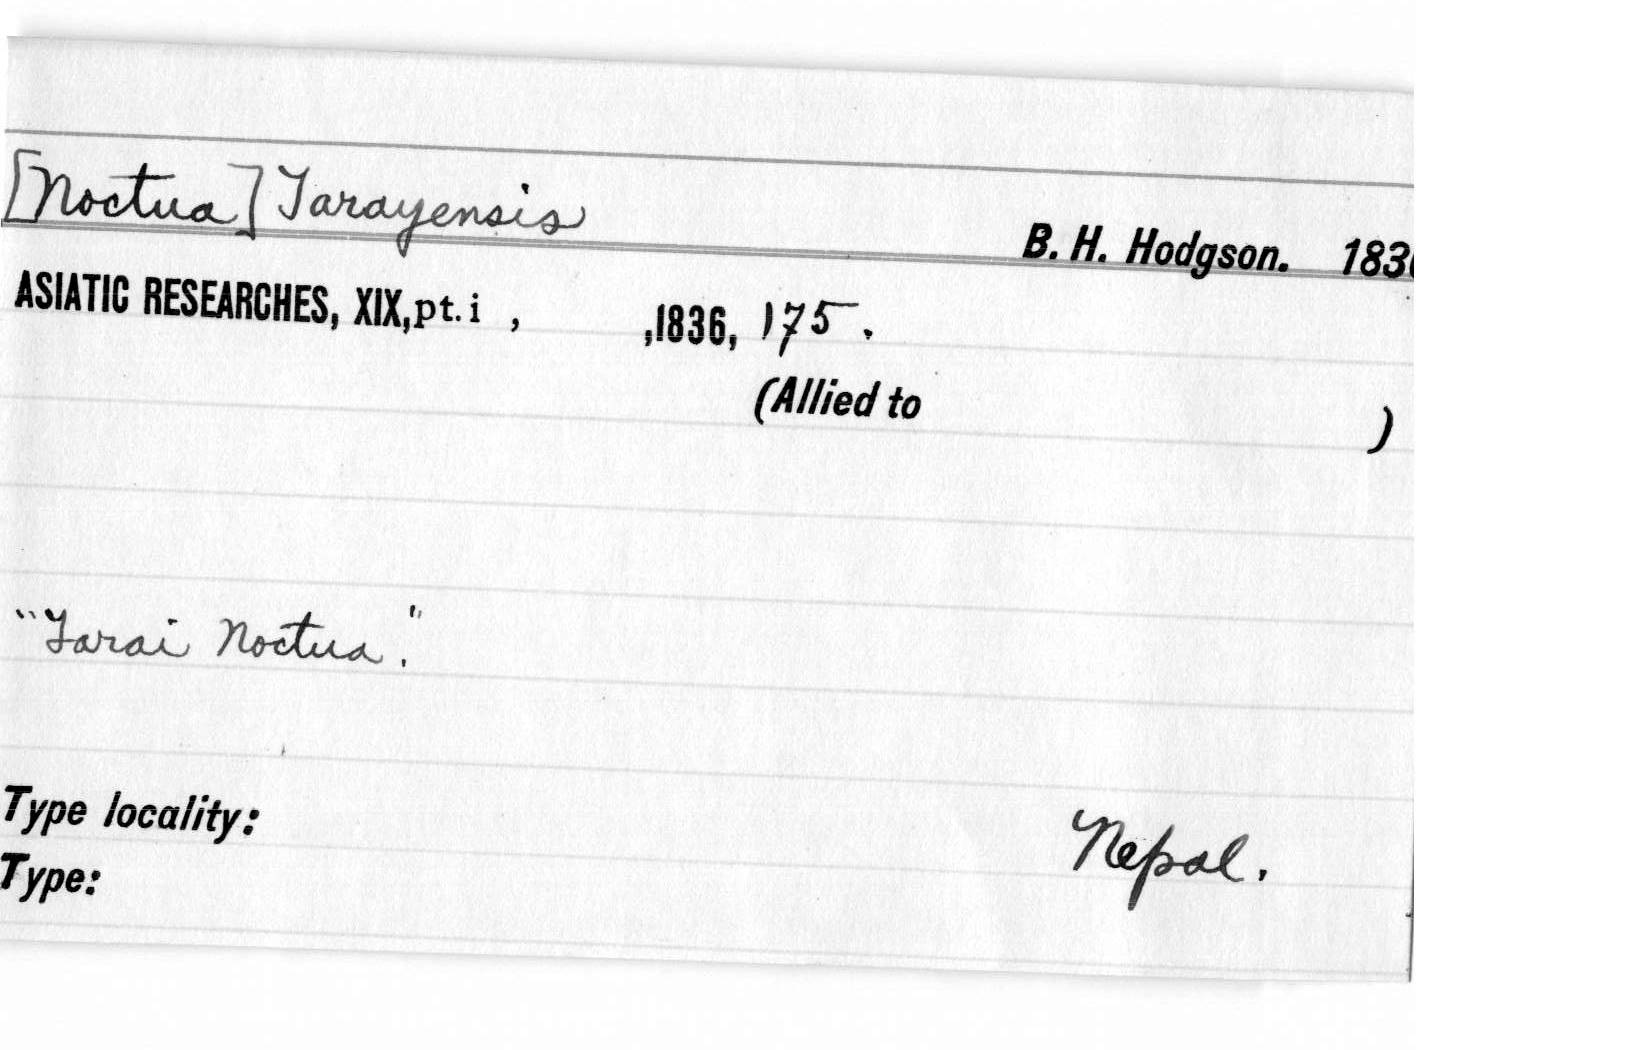 [Noctua] Tarayensis
B. H. Hodgson. 183
ASIATIC RESEARCHES, XIX, pt. i , ,1836, 175.
(Allied to )
"Tarai Noctua."
Type locality: Nepal.
Type: